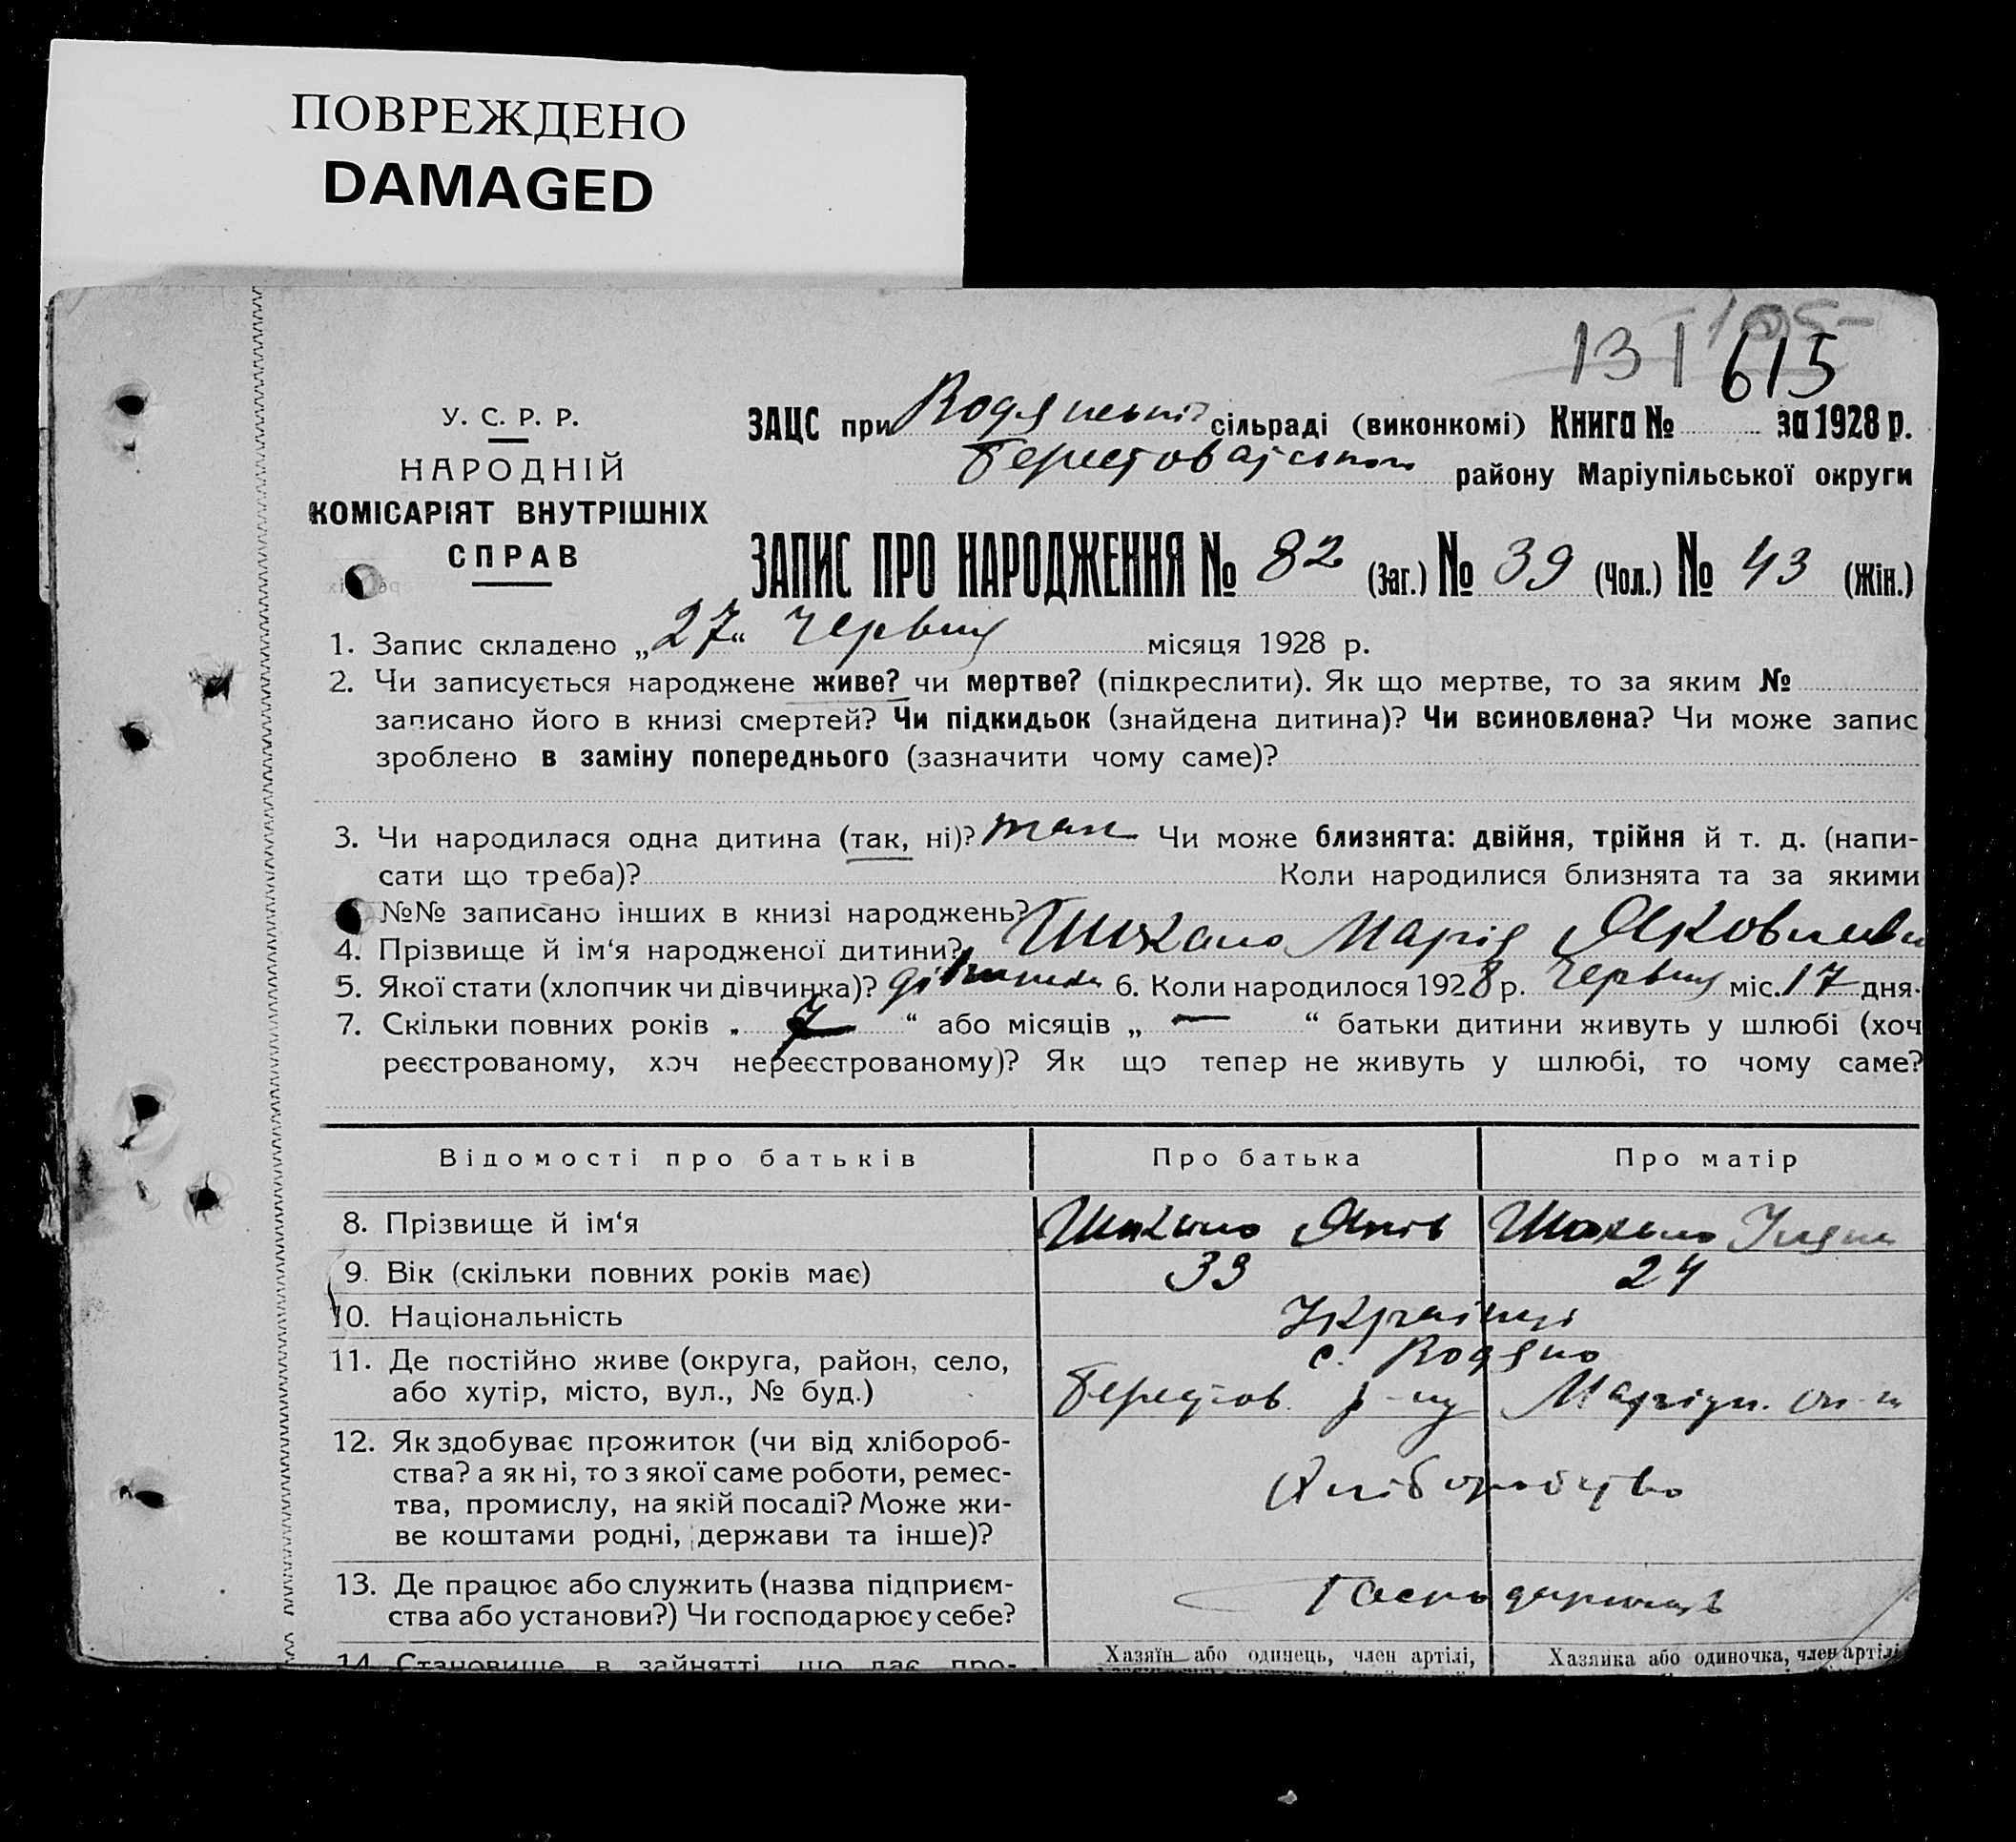 ПОВРЕЖДЕНО
DAMAGED
131 615
У. С. Р. Р.
НАРОДНІЙ
КОМІСАРІЯТ ВНУТРІШНІХ
СПРАВ
ЗАЦС при Водянській сільраді (виконкомі) Книга № за 1928 р.
району Маріупільської округи
ЗАПИС ПРО НАРОДЖЕННЯ № 82 (Заг.) № 39 (Чол.) № 43 (Жін.)
1. Запис складено „27“ Червця місяця 1928 р.
2. Чи записується народжене живе? чи мертве? (підкреслити). Як що мертве, то за яким №
записано його в книзі смертей? Чи підкидьок (знайдена дитина)? Чи всиновлена? Чи може запис
зроблено в заміну попереднього (зазначити чому саме)?
3. Чи народилася одна дитина (так, ні)? так Чи може близнята: двійня, трійня й т. д. (напи-
сати що треба)? Коли народилися близнята та за якими
№№ записано інших в книзі народжень?
4. Прізвище й ім‘я народженої дитини? Марія Яковлевн
5. Якої стати (хлопчик чи дівчинка)? дівчинка 6. Коли народилося 1928 р. Червця міс. 17 дня.
7. Скільки повних років „ 7 “ або місяців „ — “ батьки дитини живуть у шлюбі (хоч
реєстрованому, хоч нереєстрованому)? Як що тепер не живуть у шлюбі, то чому саме?
Відомості про батьків Про батька Про матір
8. Прізвище й ім‘я Яків
9. Вік (скільки повних років має) 33 24
10. Національність Українці
11. Де постійно живе (округа, район, село, с. Водяно
або хутір, місто, вул., № буд.) Берестов. р-ну Маріуп. ок-и
12. Як здобуває прожиток (чи від хлібороб-
ства? а як ні, то з якої саме роботи, ремес-
тва, промислу, на якій посаді? Може жи-
ве коштами родні, держави та інше)?
Хліборобство
13. Де працює або служить (назва підприєм-
ства або установи?) Чи господарює у себе?
14. Становище в зайнятті, що дає про-
Хазяїн або одинець, член артілі,
Хазяйка або одиночка, член артілі